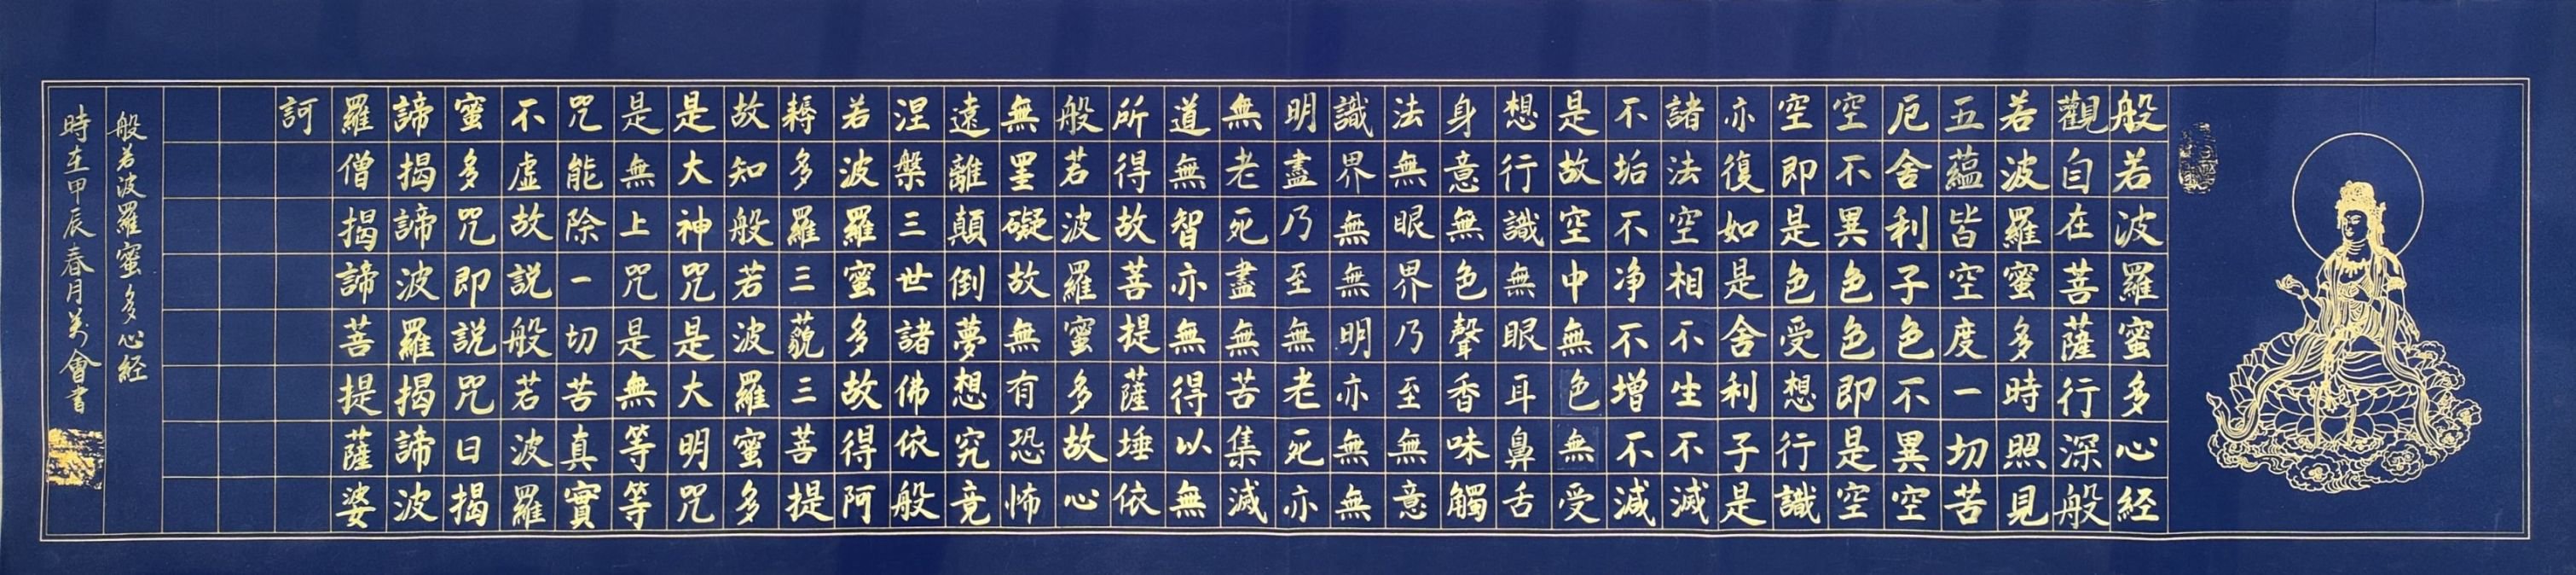 般若波羅蜜多心経
觀自在菩薩行深般
若波羅蜜多時照見
五蘊皆空度一切苦
厄舍利子色不異空
空不異色色即是空
空即是色受想行識
亦復如是舍利子是
諸法空相不生不滅
不垢不净不增不減
是故空中無色無受
想行識無眼耳鼻舌
身意無色聲香味觸
法無眼界乃至無意
識界無無明亦無無
明盡乃至無老死亦
無老死盡無苦集滅
道無智亦無得以無
所得故菩提薩埵依
般若波羅蜜多故心
無罣礙故無有恐怖
遠離顛倒夢想究竟
涅槃三世諸佛依般
若波羅蜜多故得阿
耨多羅三藐三菩提
故知般若波羅蜜多
是大神咒是大明咒
是無上咒是無等等
咒能除一切苦真實
不虛故説般若波羅
蜜多咒即説咒曰揭
諦揭諦波羅揭諦波
羅僧揭諦菩提薩婆
訶
般若波羅蜜多心経
時在甲辰春月會書